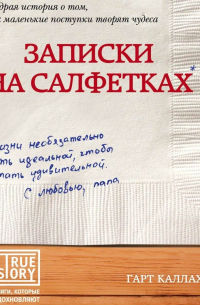 драя история о том,
маленькие поступки творят чудеса
ЗАПИСКИ
НА САЛФЕТКАХ*
изни необязательно
ть идеальной, чтобы
тать удивительной.
С любовью, папа
TRUE
STORY
ИГИ, КОТОРЫЕ
ДОХНОВЛЯЮТ
ГАРТ КАЛЛАХ